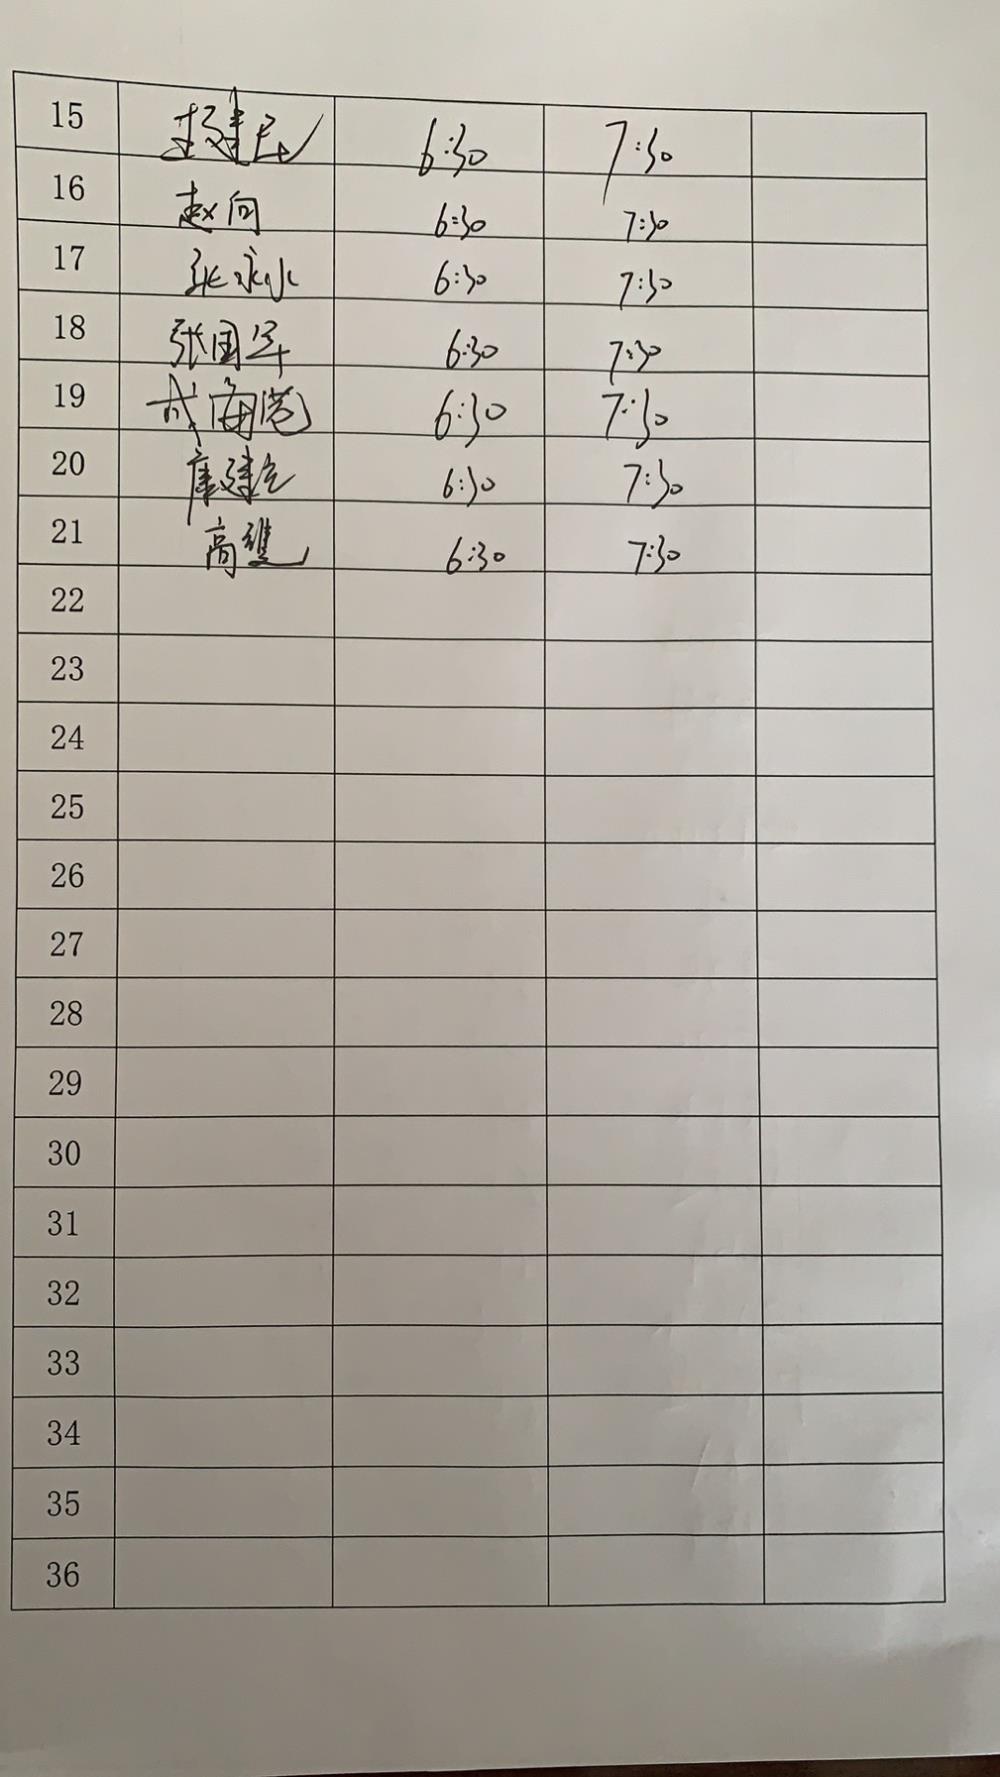 15 建民 6:30 7:30
16 赵向 6:30 7:30
17 张永水 6:30 7:30
18 张国军 6:30 7:30
19 武海港 6:30 7:30
20 康建 6:30 7:30
21 高 6:30 7:30
22
23
24
25
26
27
28
29
30
31
32
33
34
35
36